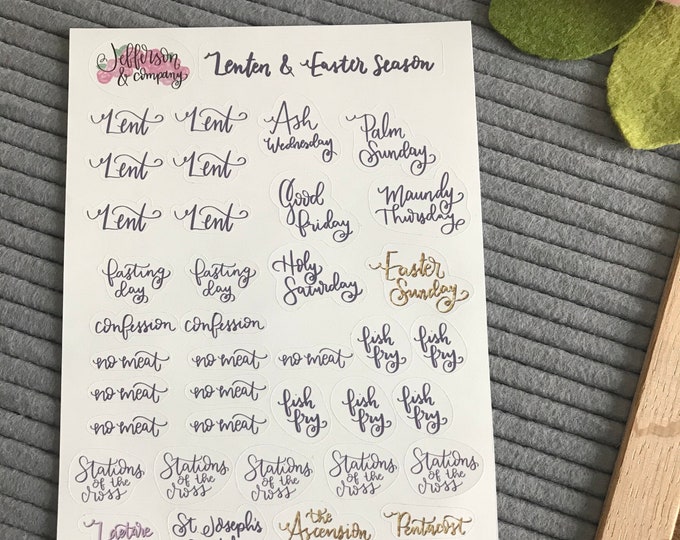 Jefferson
& company
Lenten & Easter Season
Lent Lent
Ash
Wednesday
Palm
Sunday
Lent Lent
Lent Lent
Good
Friday
Maundy
Thursday
fasting
day
fasting
day
Holy
Saturday
Easter
Sunday
confession confession
fish
fry
fish
fry
no meat no meat no meat
no meat no meat
no meat no meat
fish
fry
fish
fry
fish
fry
Stations
of the
cross
Stations
of the
cross
Stations
of the
cross
Stations
of the
cross
Stations
of the
cross
Laetare
St. Joseph's
the
Ascension
Pentecost